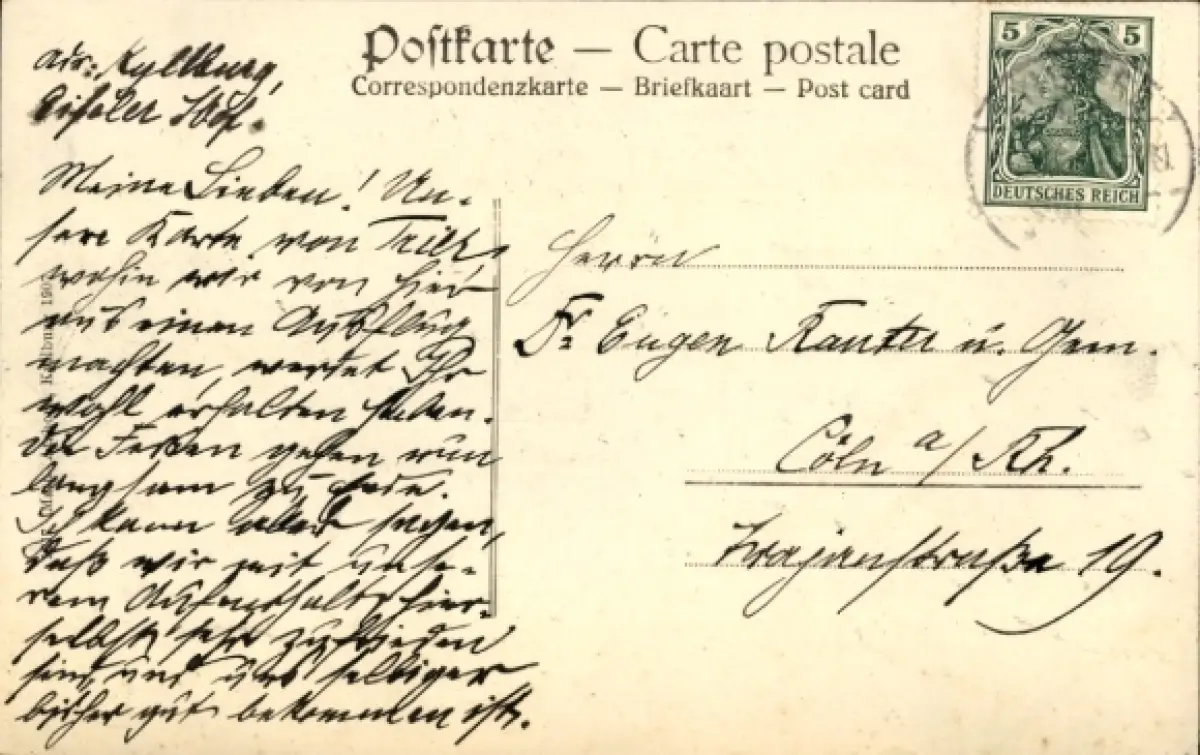 Postkarte — Carte postale
Correspondenzkarte — Briefkaart — Post card
5 5
DEUTSCHES REICH
adr: Kyllburg,
Eifeler Hof.
Meine Lieben! Un-
sere Karte von Trier,
wohin wir von hier
aus einen Ausflug
machten, werdet Ihr
wohl erhalten haben.
Die Ferien gehen nun
langsam zu Ende.
Ich kann aber sagen,
daß wir mit unse-
rem Aufenthalt hier-
selbst sehr zufrieden
sind und uns selbiger
bisher gut bekommen ist.
Herrn
Dr. Eugen Kantee u. Gem.
Cöln a/Rh.
Trajanstraße 19.